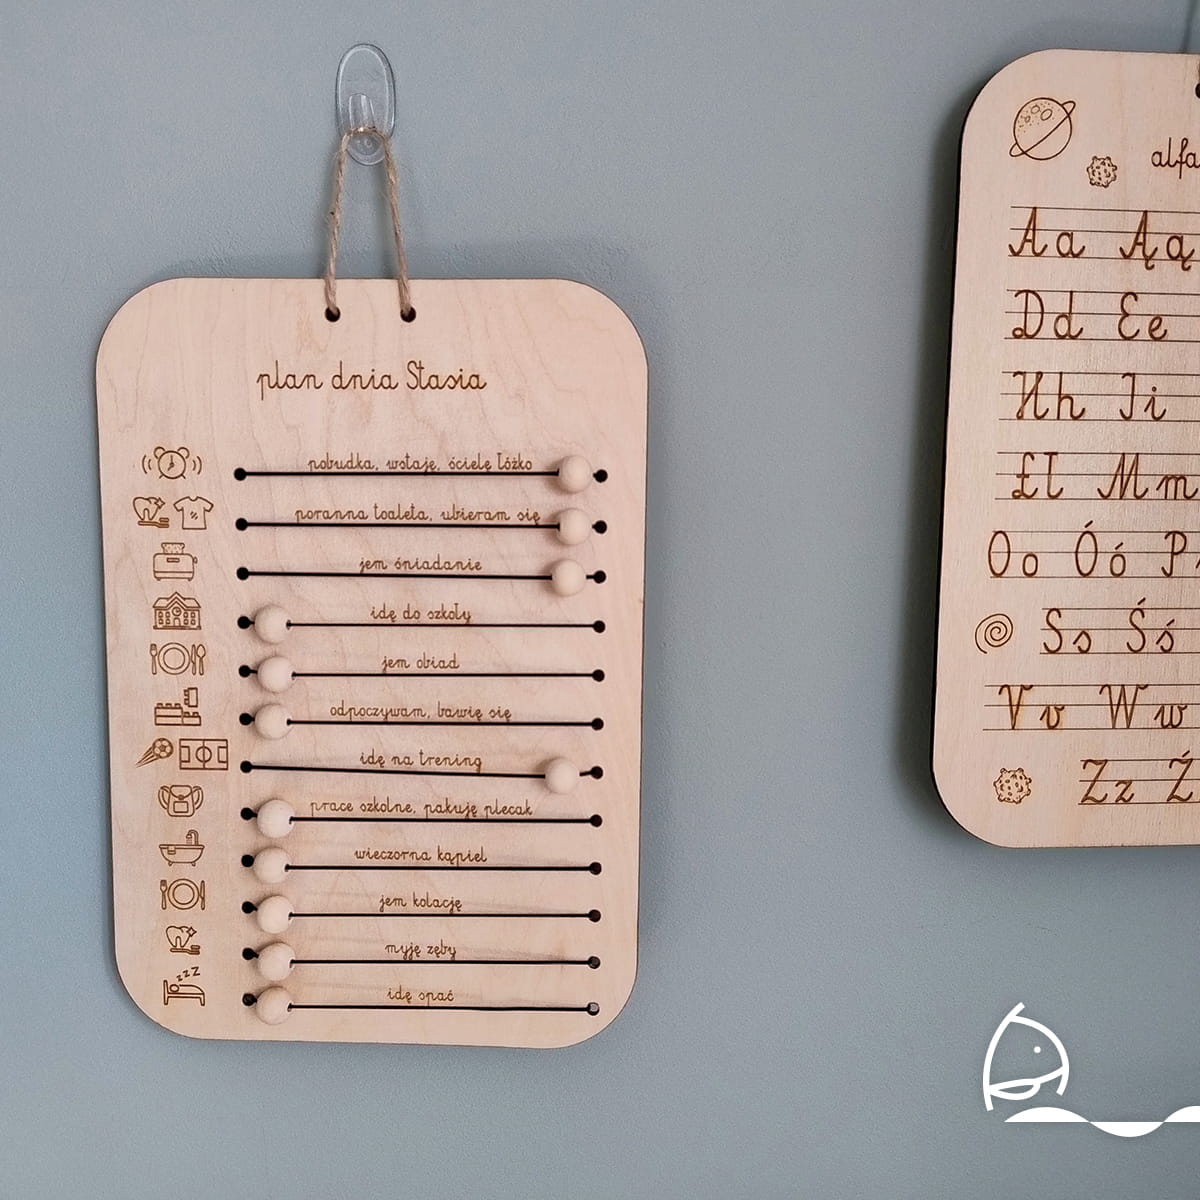 plan dnia Stasia
pobudka, wstaję, ścielę łóżko
poranna toaleta, ubieram się
jem śniadanie
idę do szkoły
jem obiad
odpoczywam, bawię się
idę na trening
prace szkolne, pakuję plecak
wieczorna kąpiel
jem kolację
myję zęby
idę spać
zzz
alfa
Aa Ąą
Dd Ee
Hh Ii
Łł Mm
Oo Óó P
Ss Śś
Vv Ww
Zz Ź